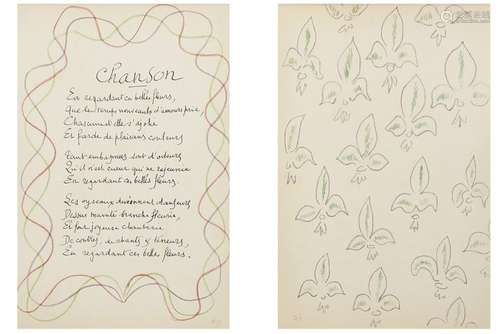 Chanson
En regardant ces belles fleurs,
que le temps nouveau d'amours prie,
Chascune d'elle s'ajolie
Et farde de plaisans couleurs
Tant embasmées sont d'odeurs
Qu'il n'est cueur qui ne rajeunie
En regardant ces belles fleurs.
Les oyseaux deviennent danseurs
Dessus mainte branche fleurie,
Et font joyeuse chanterie
De contres, de chants & teneurs,
En regardant ces belles fleurs.